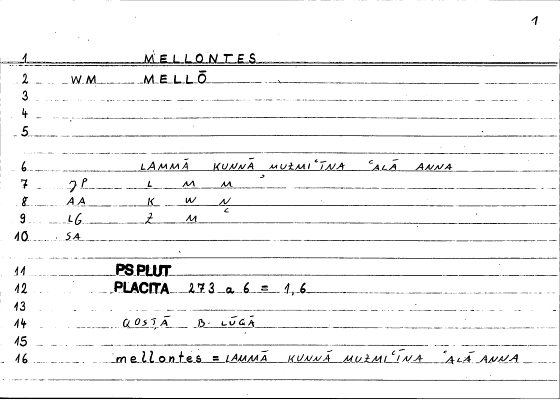 1
1 MELLONTES
2 WM MELLŌ
3
4
5
6 LAMMĀ KUNNĀ MUŻMIʿĪNA ʿALĀ ANNA
7 JP L M M
8 AA K W N
9 LG Ż M ʿ
10 SA
11 PS PLUT
12 PLACITA 273 a 6 = 1,6
13
14 QOSṬĀ B. LŪQĀ
15
16 mellontes = LAMMĀ KUNNĀ MUŻMIʿĪNA ʿALĀ ANNA